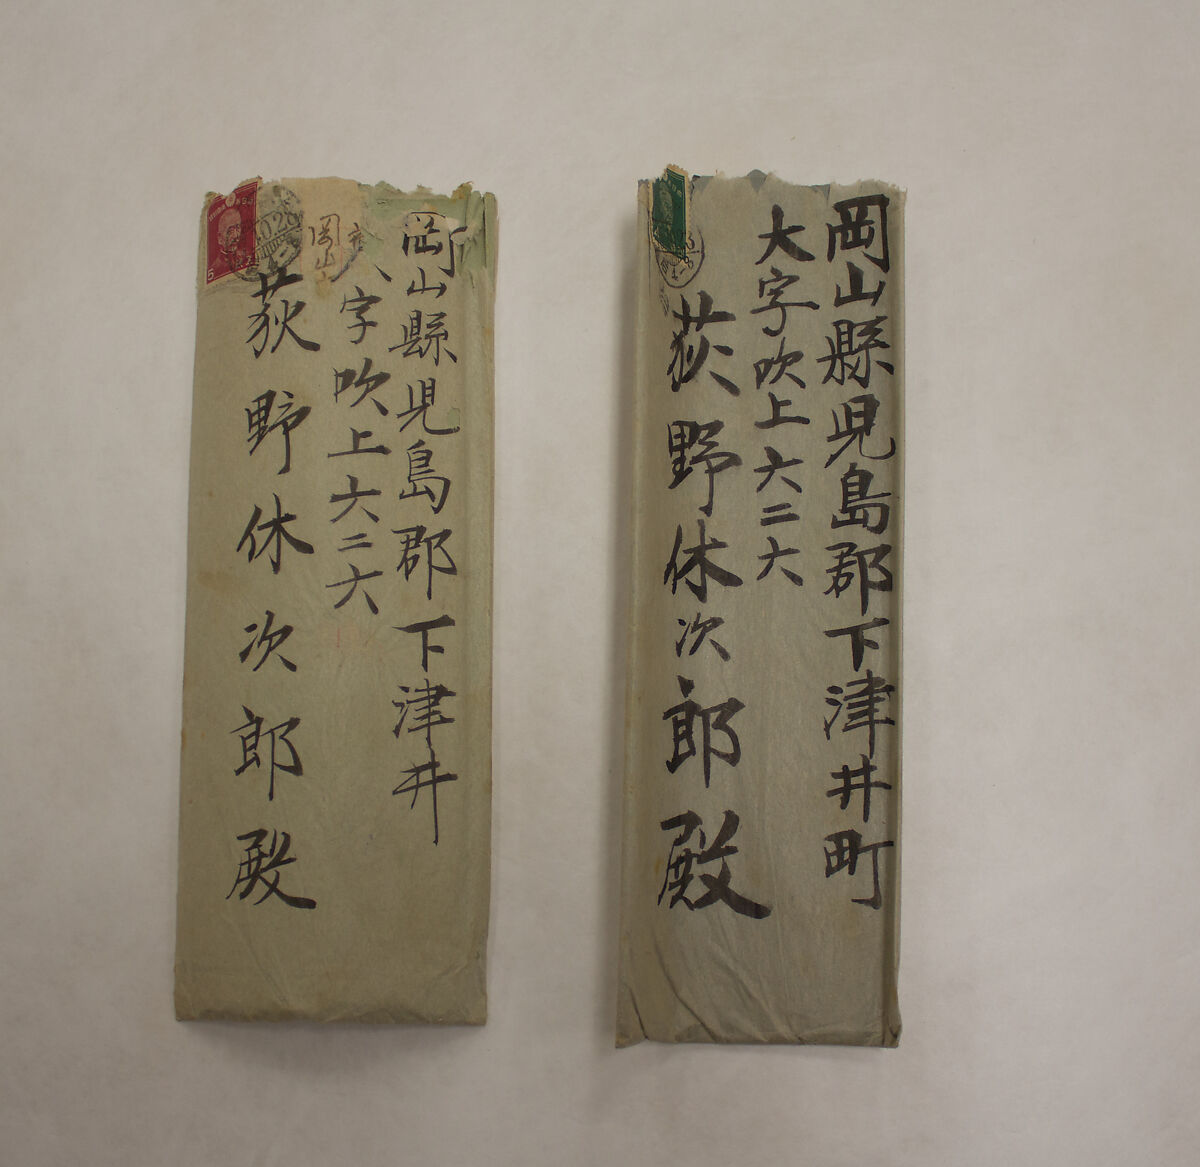 岡山縣児島郡下津井
字吹上六二六
荻野休次郎殿
岡山
5
岡山縣児島郡下津井町
大字吹上六二六
荻野休次郎殿